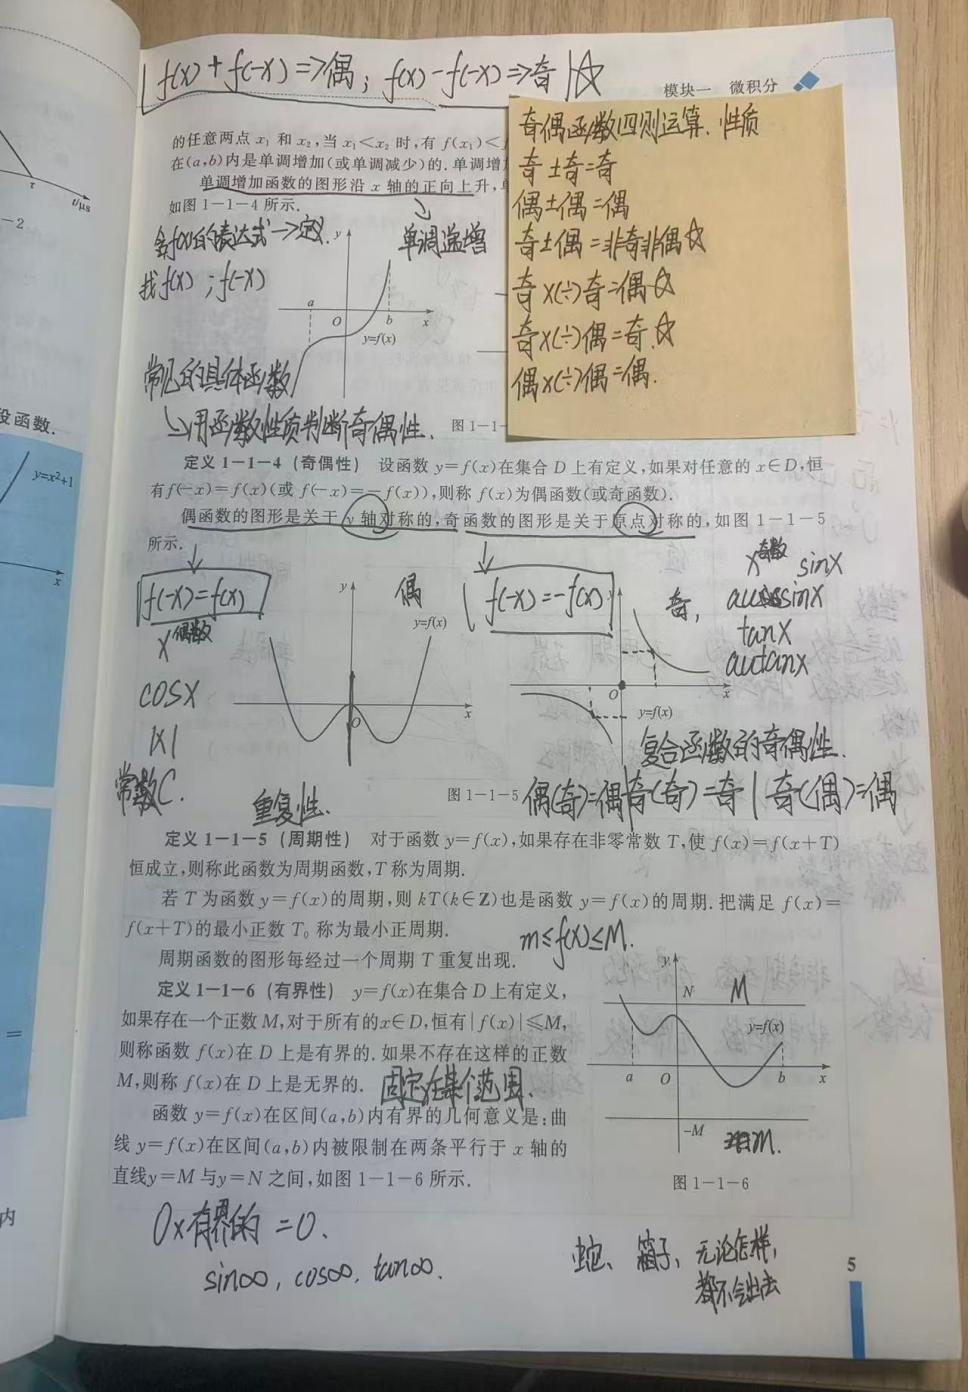 f(x)+f(-x)=>偶; f(x)-f(-x)=>奇
模块一 微积分
的任意两点 x₁ 和 x₂,当 x₁<x₂ 时,有 f(x₁)<f
在(a,b)内是单调增加(或单调减少)的. 单调增
单调增加函数的图形沿 x 轴的正向上升,单
如图 1-1-4 所示.
奇偶函数四则运算.性质
奇±奇=奇
偶±偶=偶
奇±偶=非奇非偶☆
奇×(÷)奇=偶☆
奇×(÷)偶=奇.☆
偶×(÷)偶=偶.
f(x)的表达式→定义.
单调递增
找f(x);f(-x)
y
a
O
b
x
y=f(x)
常见的具体函数
↳用函数性质判断奇偶性.
图 1-1-
段函数.
y=x²+1
x
t/μs
τ
-2
定义 1-1-4 (奇偶性) 设函数 y=f(x)在集合 D 上有定义,如果对任意的 x∈D,恒
有f(-x)=f(x)(或 f(-x)=-f(x)),则称 f(x)为偶函数(或奇函数).
偶函数的图形是关于 y 轴对称的,奇函数的图形是关于原点对称的,如图 1-1-5
所示.
f(-x)=f(x)
x偶数
cosx
|x|
常数C.
y
偶
y=f(x)
O
x
f(-x)=-f(x)
y
奇,
x奇数 sinx
arcsinx
tanx
arctanx
x
y=f(x)
复合函数的奇偶性.
重复性.
图 1-1-5
偶(奇)=偶|奇(奇)=奇|奇(偶)=偶
定义 1-1-5 (周期性) 对于函数 y=f(x),如果存在非零常数 T,使 f(x)=f(x+T)
恒成立,则称此函数为周期函数,T 称为周期.
若 T 为函数 y=f(x)的周期,则 kT(k∈Z)也是函数 y=f(x)的周期.把满足 f(x)=
f(x+T)的最小正数 T₀ 称为最小正周期.
m≤f(x)≤M.
周期函数的图形每经过一个周期 T 重复出现.
定义 1-1-6 (有界性) y=f(x)在集合 D 上有定义,
如果存在一个正数 M,对于所有的x∈D,恒有|f(x)|≤M,
则称函数 f(x)在 D 上是有界的.如果不存在这样的正数
M,则称 f(x)在 D 上是无界的.
固定在某个范围.
函数 y=f(x)在区间(a,b)内有界的几何意义是:曲
线 y=f(x)在区间(a,b)内被限制在两条平行于 x 轴的
直线y=M 与y=N 之间,如图 1-1-6 所示.
y
N
M
y=f(x)
a
O
b
x
-M
m.
图 1-1-6
=
内
0×有界的=0.
sin∞, cos∞, tan∞.
蛇、箱子,无论怎样,
都不会出去
5